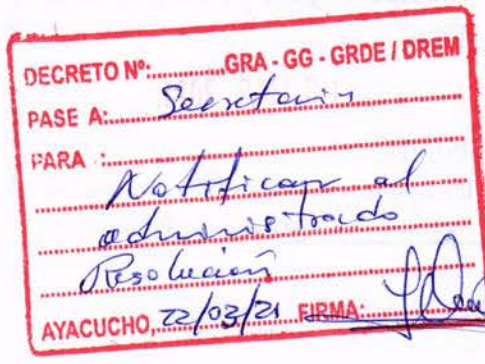 DECRETO Nº:............GRA - GG - GRDE / DREM
PASE A: Secretaria
PARA :
Notificar al
administrado
Resolución
AYACUCHO, 22/03/21 FIRMA: